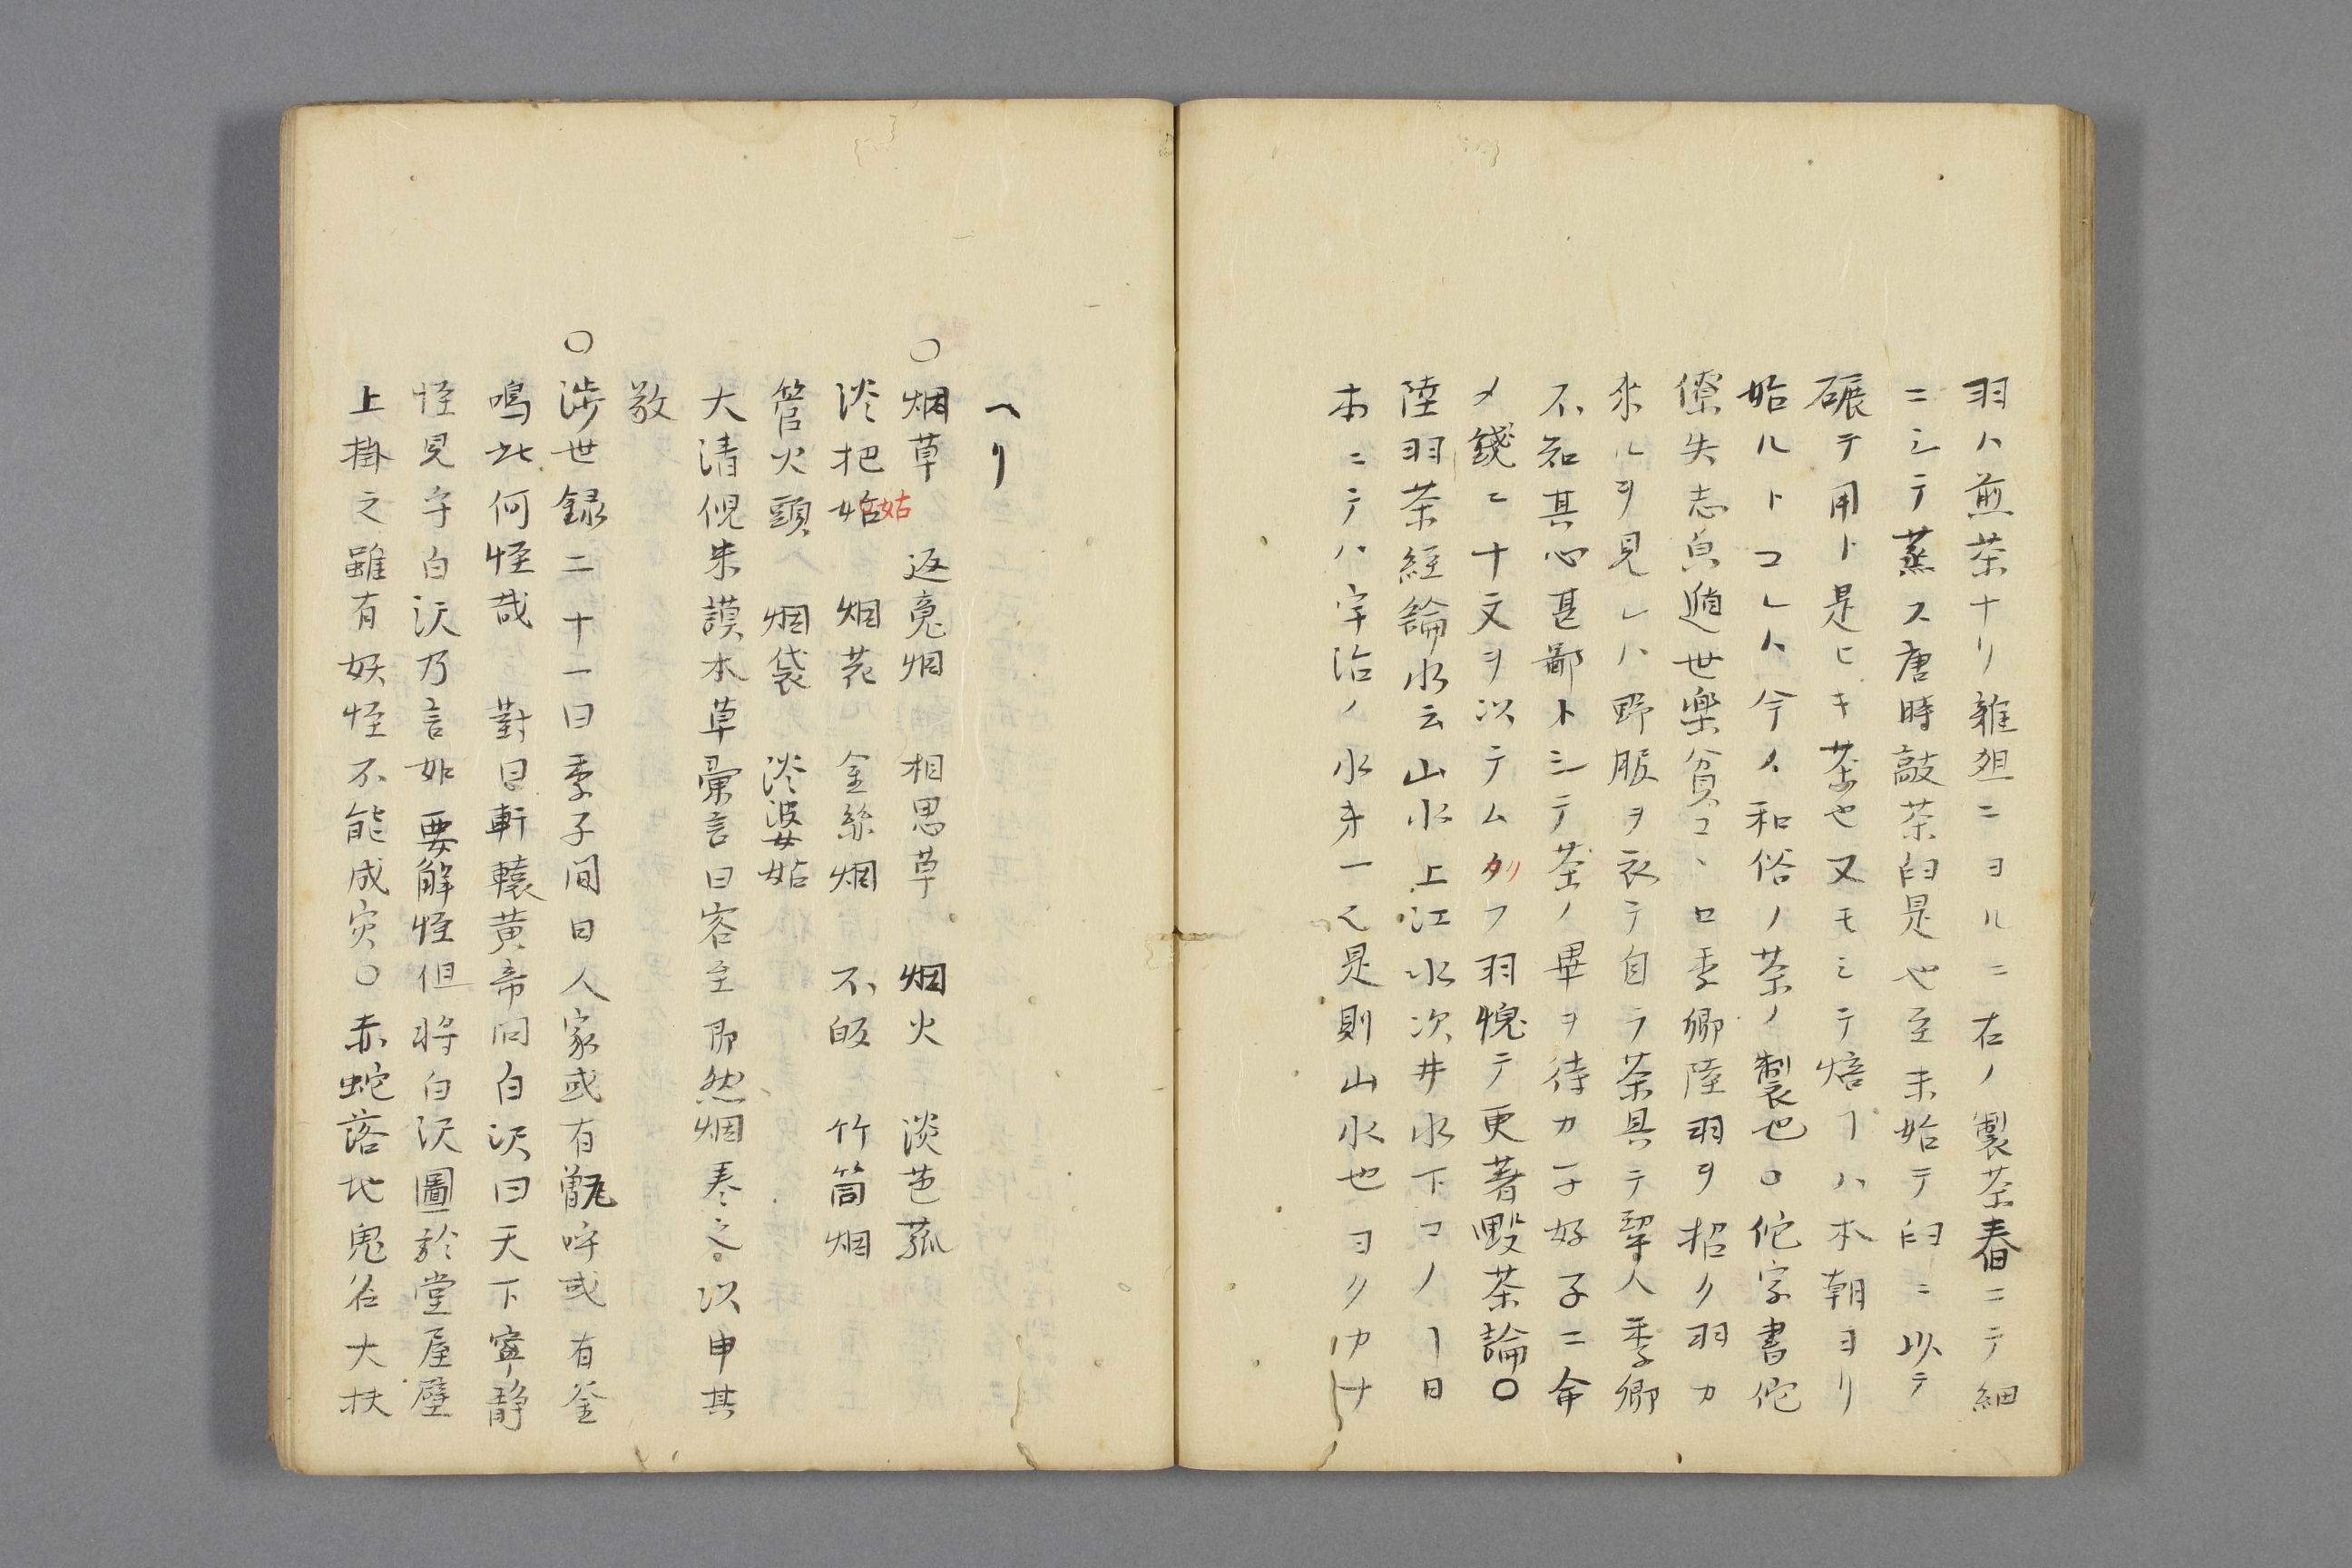 羽ハ煎茶ナリ雜爼ニヨルニ右ノ製茶舂ニテ細
ニシテ蒸ス唐時敲茶臼是也至末始テ臼ニ以テ
碾テ用ト是ヒキ茶也又モミテ焙ヿハ本朝ヨリ
始ルトコレ今ノ和俗ノ茶ノ製也○佗字書佗
傺失志皃遁世樂貧コヽロ季卿陸羽ヲ招ク羽カ
來ルヲ見レハ野服ヲ衣テ自ラ茶具テ挈入季卿
不知其心甚鄙トシテ茶ノ畢ヲ待カ子好子ニ命
メ錢ニ十文ヲ以テム クフ羽愧テ更著毀茶論○
陸羽茶經論水云山水上江水次井水下コノヿ日
本ニテハ宇治ノ水第一也是則山水也ヨクカナ
ヘリ
○烟草 返䰟烟 相思草 烟火 淡芭菰
淡把姑 烟花 金絲烟 不皈 竹筒烟
管火頭 烟袋 淡婆姑
大清倪朱謨本草彙言曰客至即然烟奉之以申其
敬
○渉世録二十一曰季子問曰人家或有甑呼或有釜
鳴此何怪哉 對曰軒轅黄帝问白沢曰天下寧静
怪見乎白沢乃言如要解怪但將白沢圖於堂屋壁
上掛之雖有妖怪不能成灾○赤蛇落地鬼名大扶